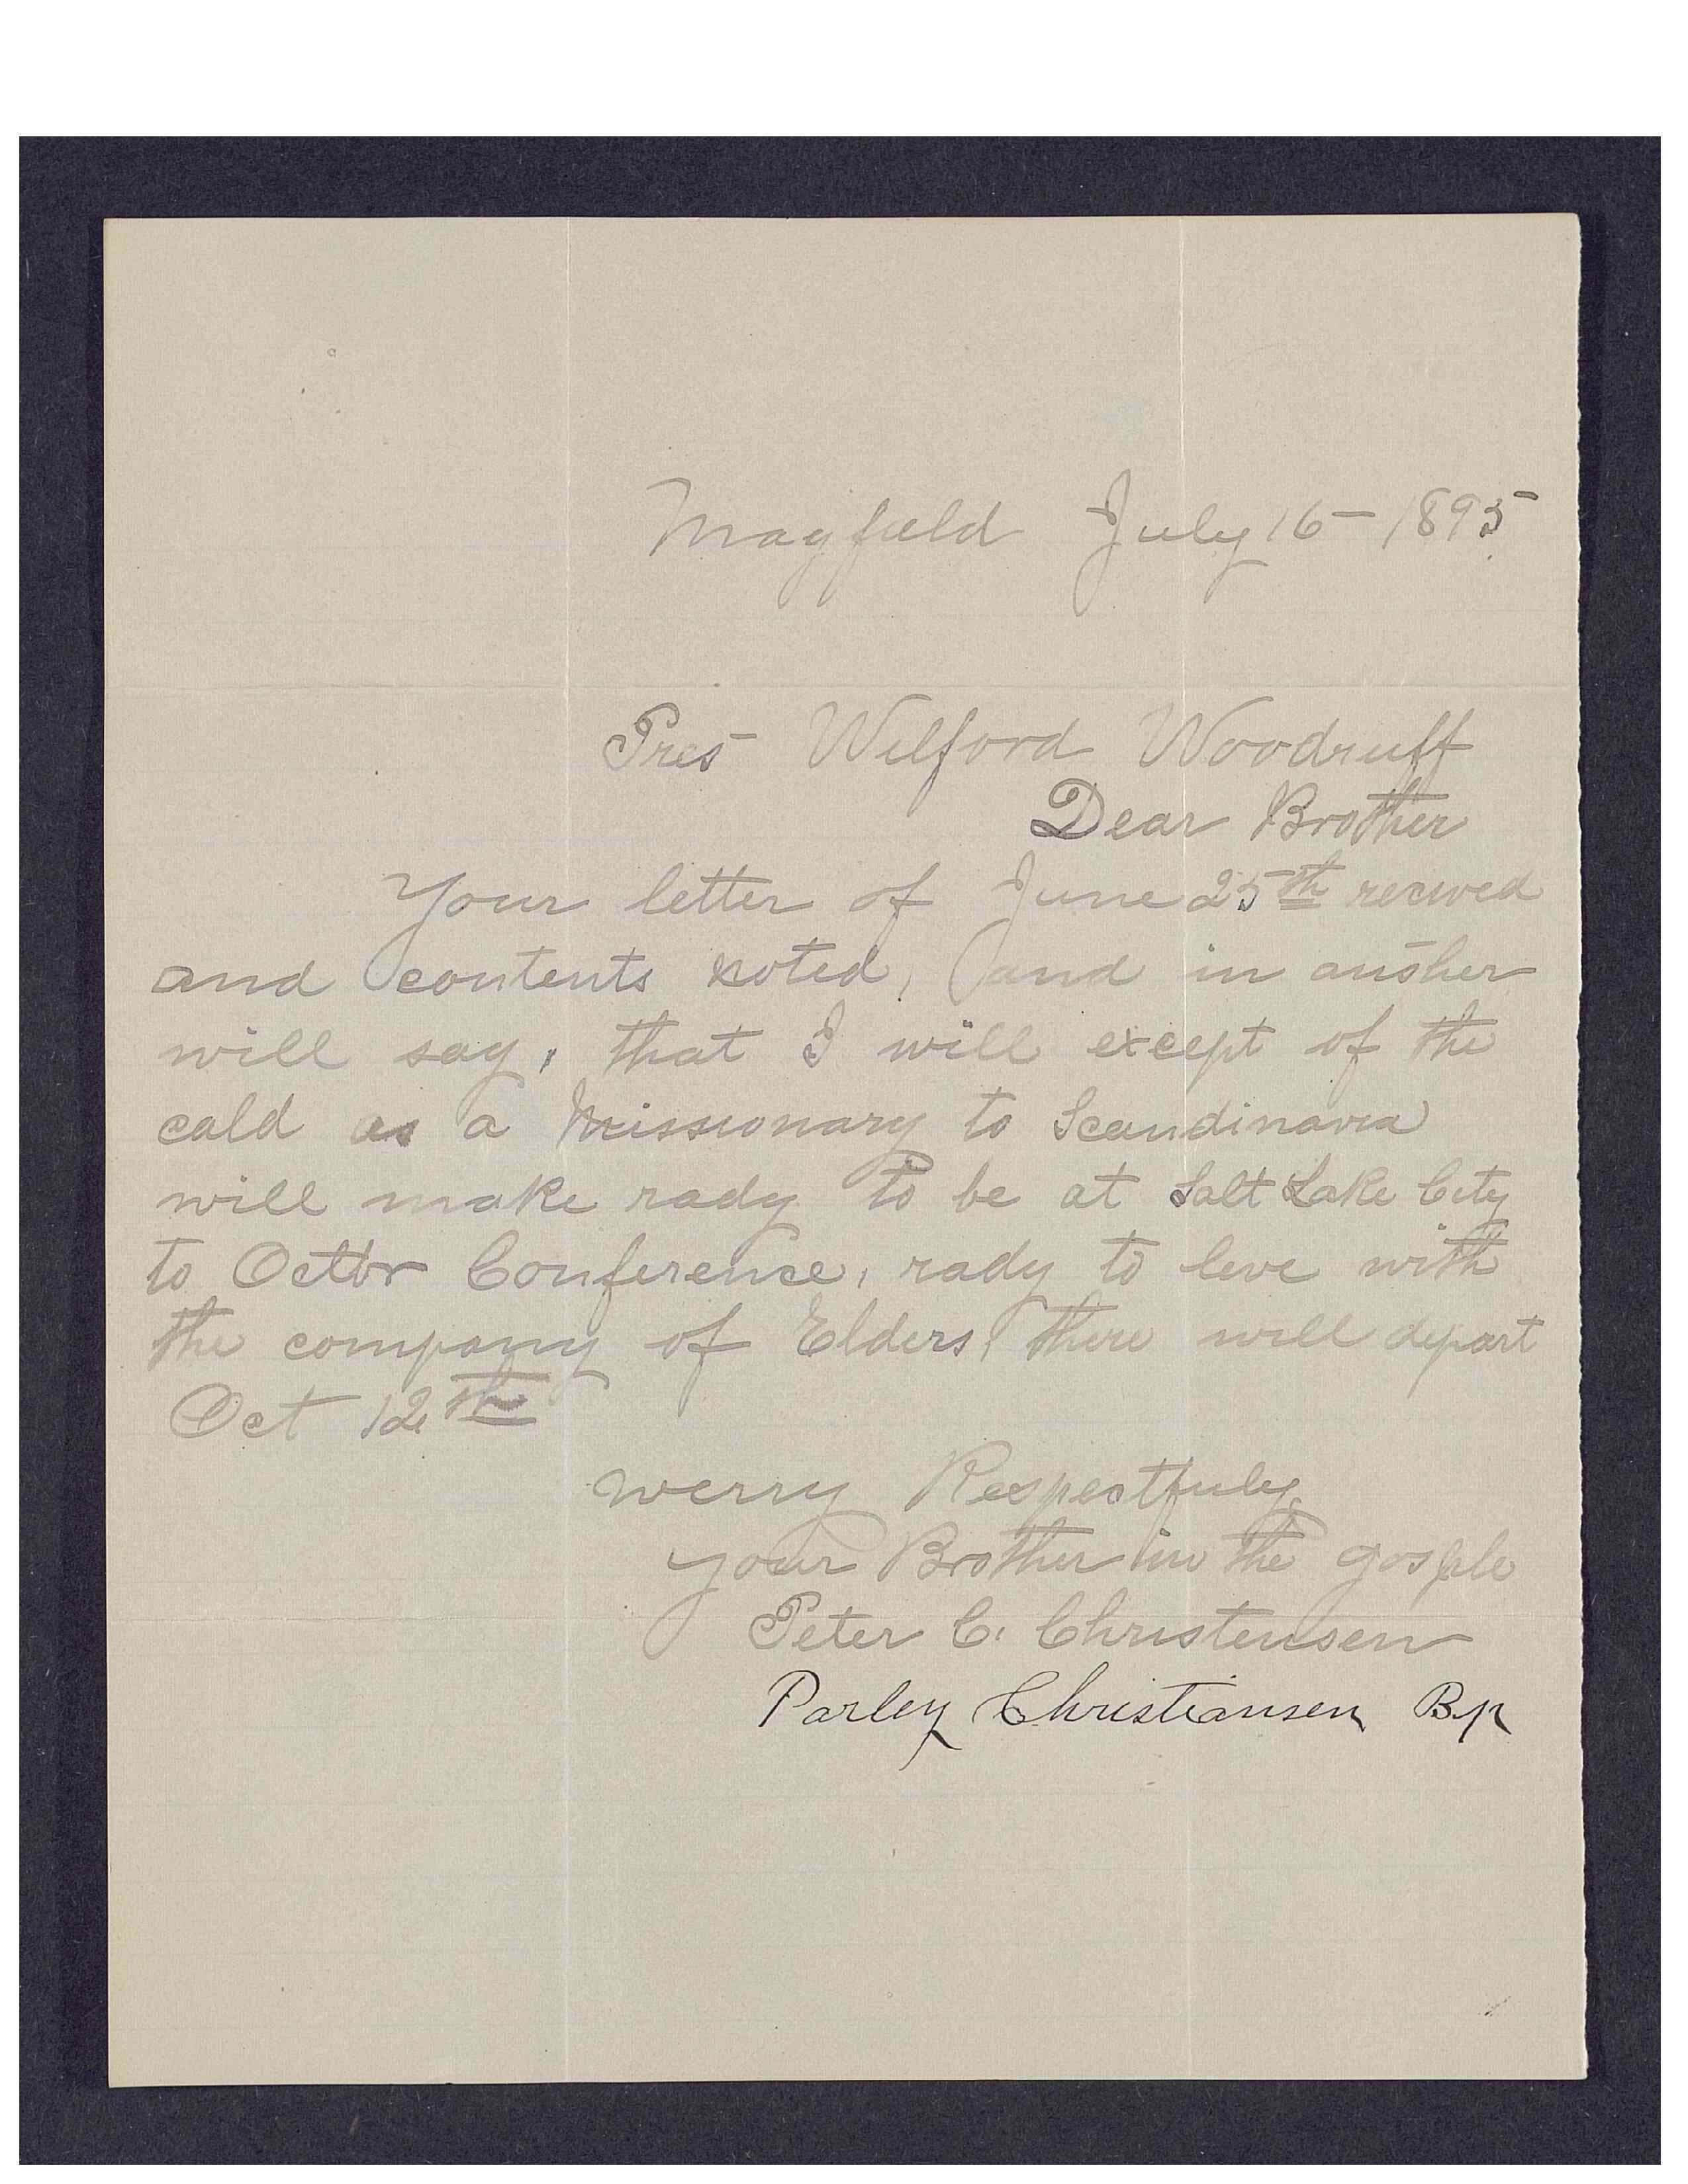 Mayfield July 16 - 1895
Pres Wilford Woodruff
Dear Brother
Your letter of June 25th recived
and contents noted, and in ansher
will say, that I will except of the
cald as a Missionary to Scandinavia
will make rady to be at Salt Lake City
to Octbr Conference, rady to leve with
the company of Elders, there will depart
Oct 12th
werry Respectfuly
your Brother in the gosple
Peter C. Christensen
Parley Christiansen Bp